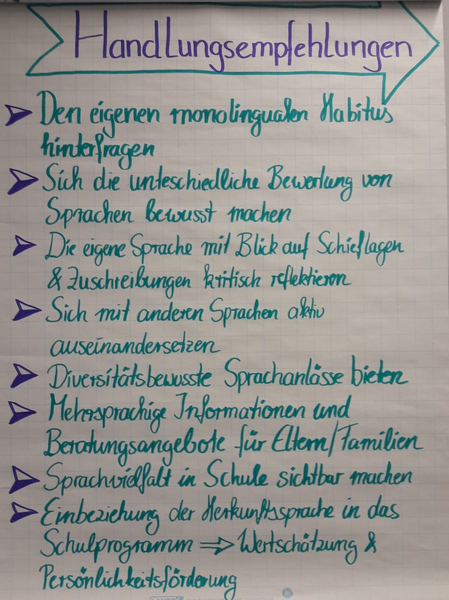 Handlungsempfehlungen
➤ Den eigenen monolingualen Habitus
hinterfragen
➤ Sich die unteschiedliche Bewertung von
Sprachen bewusst machen
➤ Die eigene Sprache mit Blick auf Schieflagen
& Zuschreibungen kritisch reflektieren
➤ Sich mit anderen Sprachen aktiv
auseinandersetzen
➤ Diversitätsbewusste Sprachanlässe bieten
➤ Mehrsprachige Informationen und
Beratungsangebote für Eltern/Familien
➤ Sprachvielfalt in Schule sichtbar machen
➤ Einbeziehung der Herkunftssprache in das
Schulprogramm ⇒ Wertschätzung &
Persönlichkeitsförderung